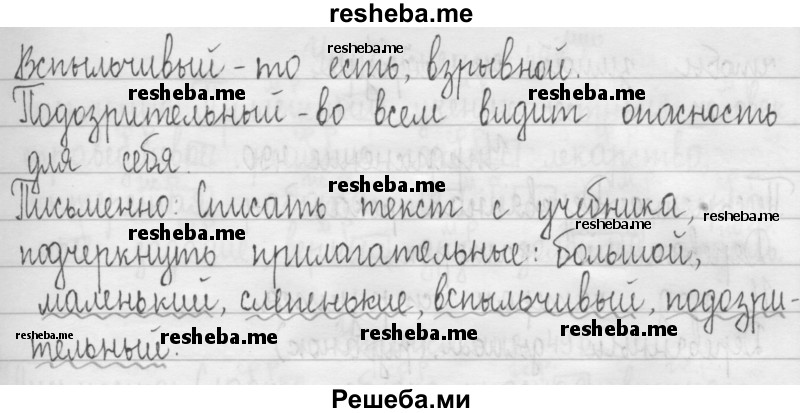 resheba.me
Вспыльчивый - то есть, взрывной.
resheba.me
Подозрительный - во всем видит опасность
resheba.me resheba.me
для себя.
resheba.me
Письменно: Списать текст с учебника,
resheba.me
подчеркнуть прилагательные: большой,
resheba.me resheba.me
маленький, слепенькие, вспыльчивый, подозри-
resheba.me resheba.me resheba.me resheba.me
тельный.
Решеба.ми